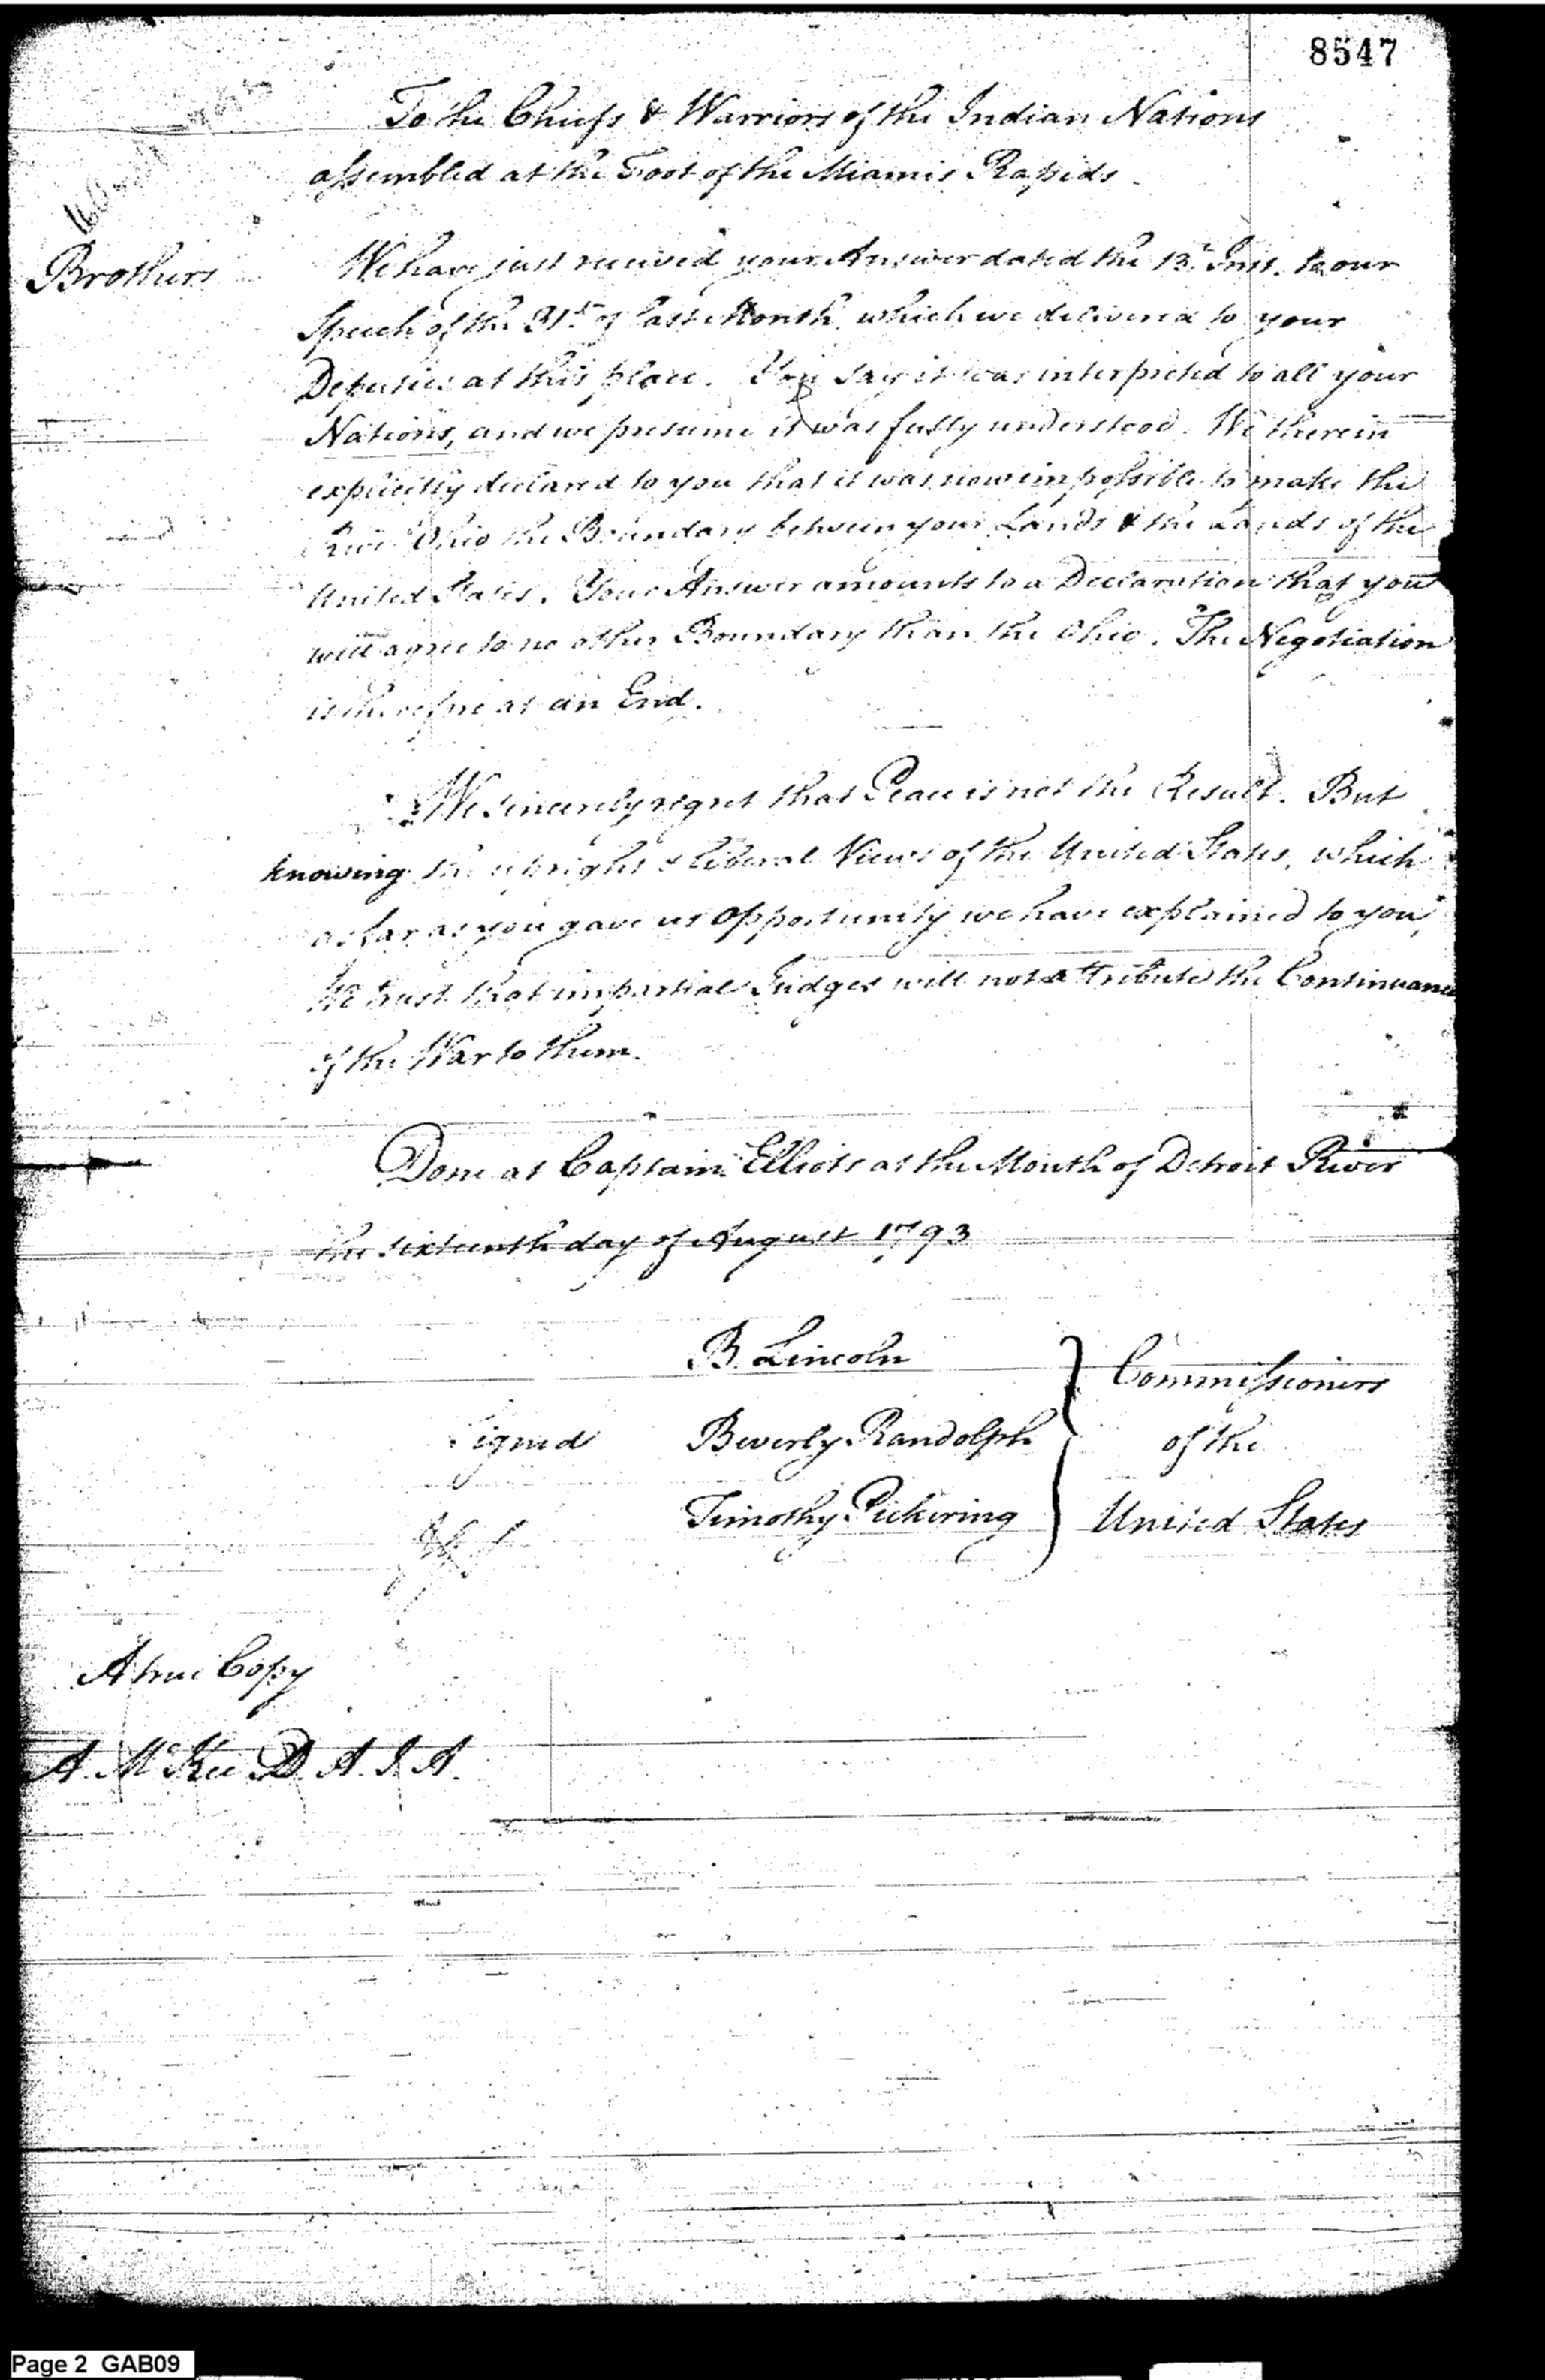 8547
To the Chiefs & Warriors of the Indian Nations
assembled at the Foot of the Miamis Rapids
Brothers
We have just received your Answer dated the 13th Inst. to our
Speech of the 31st of last Month, which we delivered to your
Deputies at this place. You say it was interpreted to all your
Nations, and we presume it was fully understood. We therein
explicitly declared to you that it was now impossible to make the
River Ohio the Boundary between your Lands & the Lands of the
United States. Your Answer amounts to a Declaration that you
will agree to no other Boundary than the Ohio. The Negotiation
is therefore at an End.
We sincerely regret that Peace is not the Result. But
knowing the upright & liberal Views of the United States, which
as far as you gave us opportunity we have explained to you,
We trust that impartial Judges will not attribute the Continuance
of the War to them.
Done at Captain Elliots at the Mouth of Detroit River
the sixteenth day of August 1793
B. Lincoln
Signed Beverly Randolph
Timothy Pickering
Commissioners
of the
United States
A true Copy
A. McKee D. A. I. A.
Page 2 GAB09